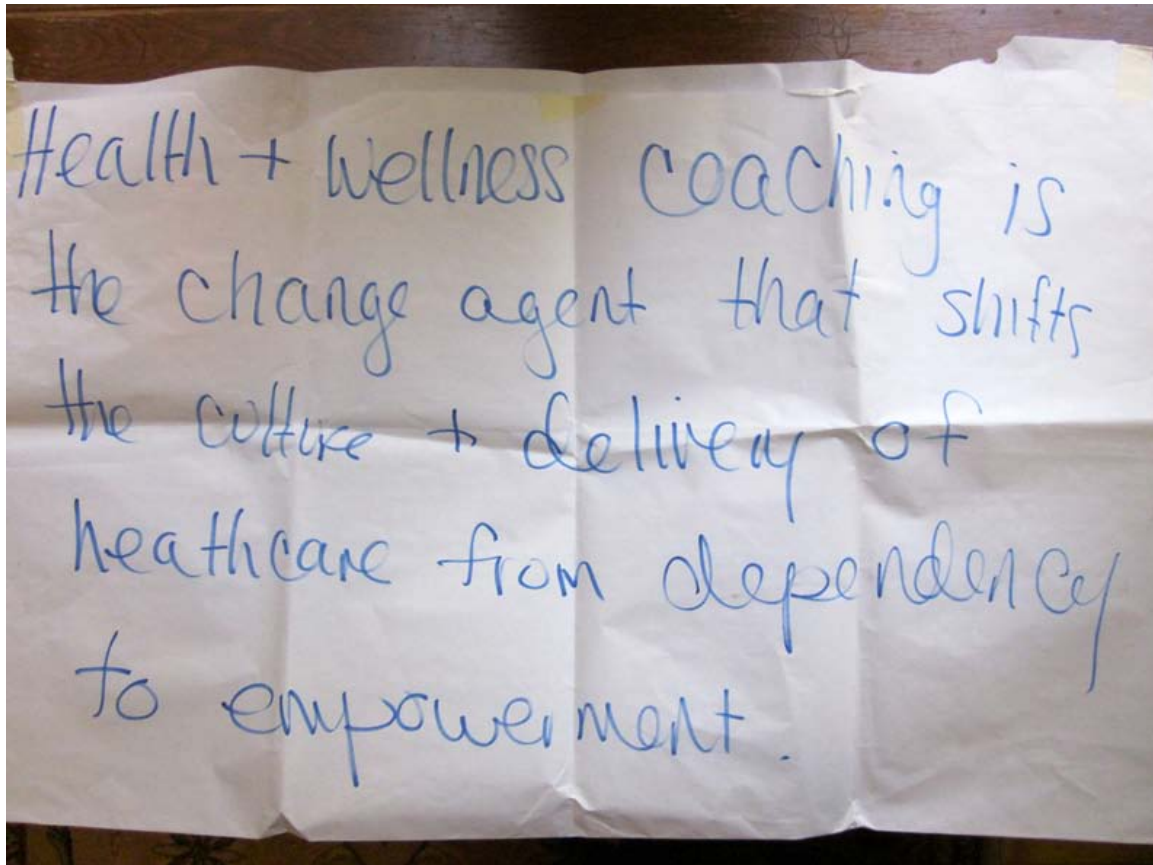 Health + Wellness coaching is
the change agent that shifts
the culture + delivery of
heathcare from dependency
to empowerment.